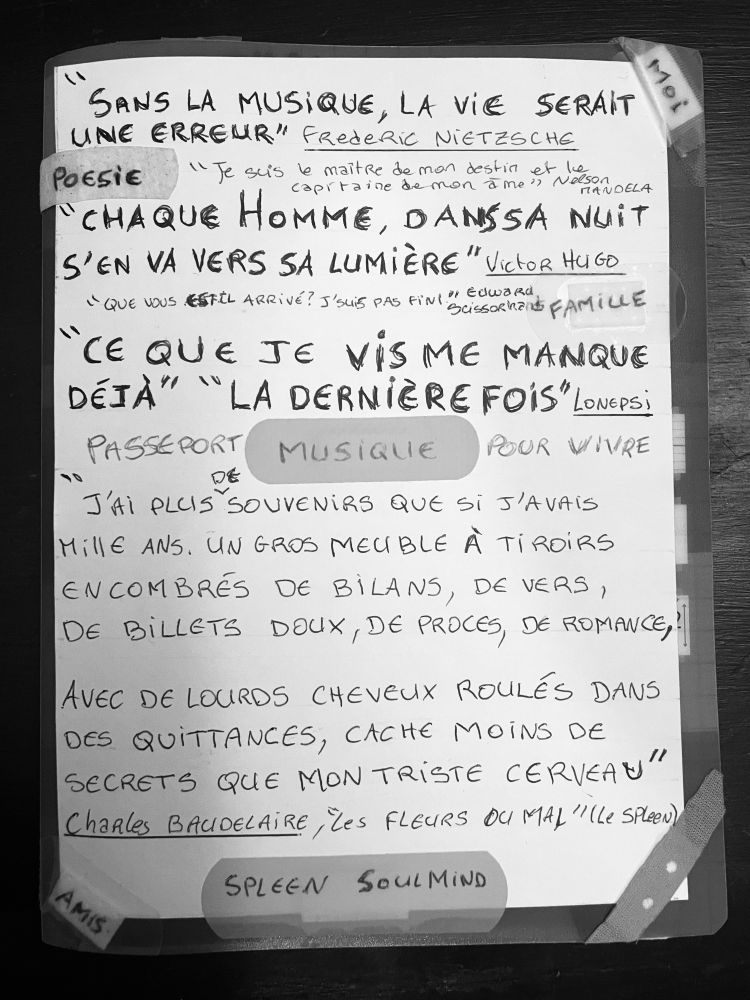 Moi
" SANS LA MUSIQUE, LA VIE SERAIT
UNE ERREUR" FREDERIC NIETZSCHE
POESIE
"Je suis le maître de mon destin et le
capitaine de mon âme" Nelson
MANDELA
"CHAQUE HOMME, DANS SA NUIT
S'EN VA VERS SA LUMIÈRE" Victor HUGO
"QUE VOUS EST IL ARRIVÉ? J'SUIS PAS FINI" Edward
Scissorhands
FAMILLE
"CE QUE JE VIS ME MANQUE
DÉJÀ" "LA DERNIÈRE FOIS" LONEPSI
PASSEPORT MUSIQUE POUR VIVRE
" J'AI PLUS DE SOUVENIRS QUE SI J'AVAIS
MILLE ANS. UN GROS MEUBLE À TIROIRS
ENCOMBRÉS DE BILANS, DE VERS,
DE BILLETS DOUX, DE PROCES, DE ROMANCE,
AVEC DE LOURDS CHEVEUX ROULÉS DANS
DES QUITTANCES, CACHE MOINS DE
SECRETS QUE MON TRISTE CERVEAU"
Charles BAUDELAIRE, "Les FLEURS DU MAL" (Le SPLEEN)
SPLEEN SOULMIND
AMIS